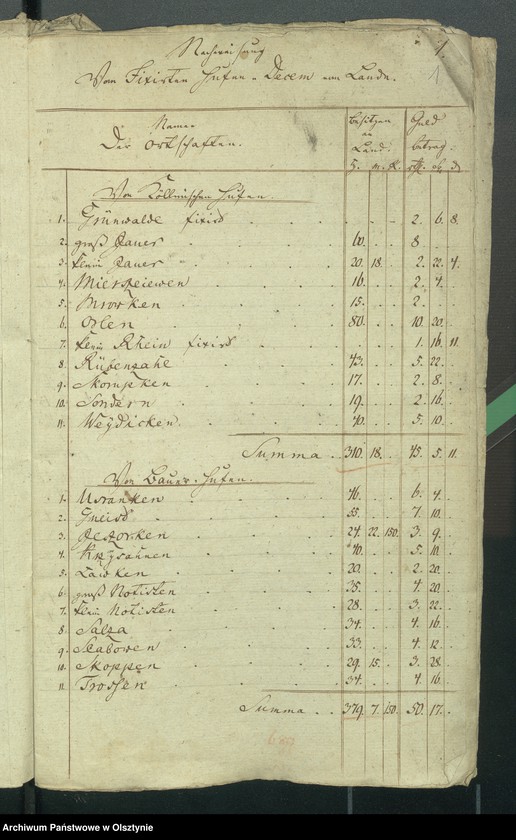 1.
1
Nachweisung
Vom Fixirten Hufen-Decem vom Lande.
Namen
Der Ortschaften.
Besitzen
an
Land.
H. M. R.
Geld
betrag.
rthl. sg. d
Von Köllmischen Hufen.
1. Grünwalde fixird . . . . . . 2. 6. 8.
2. groß Jauer . . . . 60. . . 8 . .
3. klein Jauer . . . . 20. 18. . 2. 22. 4.
4. Mierszeiewen . . . . 16. . . 2. 4. .
5. Mrowken . . . . 15. . . 2. . .
6. Orlen . . . . 80. . . 10. 20. .
7. klein Rhein fixird . . . . . . 1. 16. 11.
8. Rübenzahl . . . . 43. . . 5. 22. .
9. Skompken . . . . 17. . . 2. 8. .
10. Sondern . . . . 19. . . 2. 16. .
11. Weydicken . . . . 40. . . 5. 10. .
Summa . 310. 18. . 45. 5. 11.
Von Bauer-Hufen.
1. Usranken . . . . 46. . . 6. 4. .
2. Gneist . . . . 55. . . 7. 10. .
3. Jeszorken . . . . 24. 22. 150. 3. 9. .
4. Krzysannen . . . . 40. . . 5. 10. .
5. Lawken . . . . 20. . . 2. 20. .
6. groß Notisten . . . . 35. . . 4. 20. .
7. klein Notisten . . . . 28. . . 3. 22. .
8. Salza . . . . 34. . . 4. 16. .
9. Slabowen . . . . 33. . . 4. 12. .
10. Skoppen . . . . 29. 15. . 3. 28. .
11. Trossen . . . . 34. . . 4. 16. .
Summa . . 379. 7. 150. 50. 17. .
Archiwum Państwowe w Olsztynie